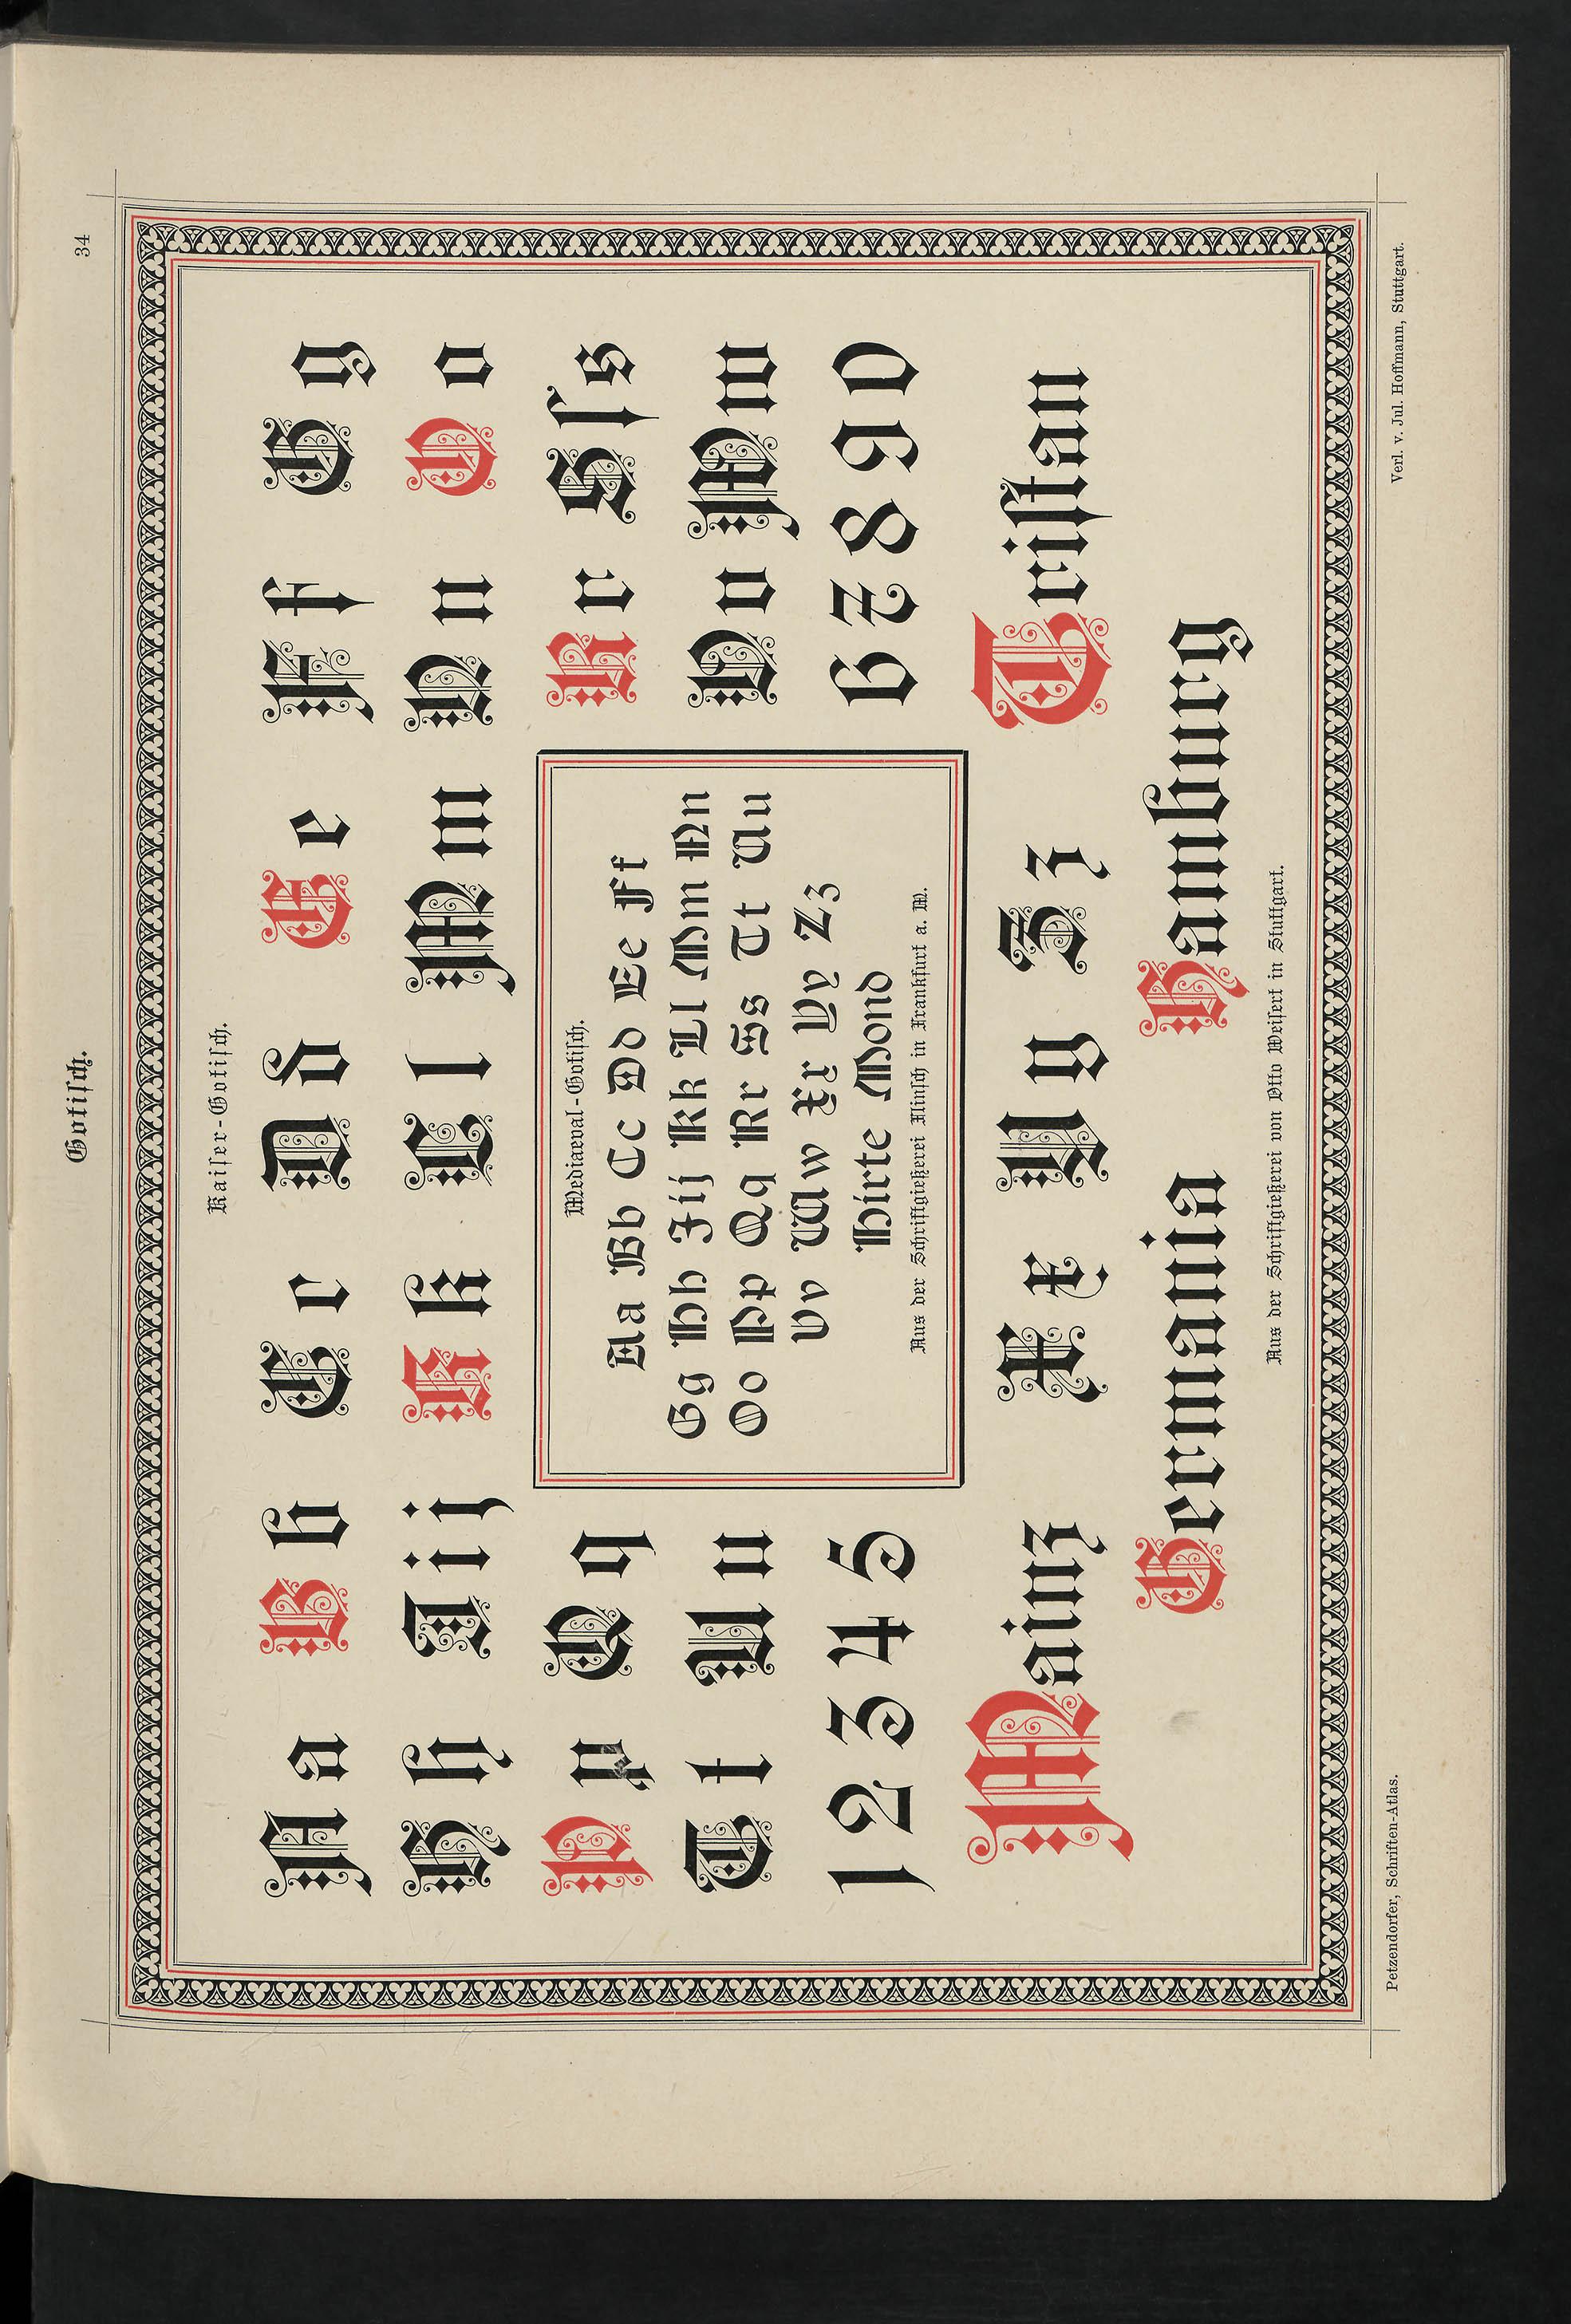 Gotiſch.
34
Kaiſer-Gotiſch.
A a B b C c D d E e F f G g
H h I i j K k L l M m N n O o
P p Q q R r S ſ s
T t U u V v W w
1 2 3 4 5 6 7 8 9 0
Mediaeval-Gotiſch.
Aa Bb Cc Dd Ee Ff
Gg Hh Jij Kk Ll Mm Nn
Oo Pp Qq Rr Ss Tt Uu
Vv Ww Xx Yy Zz
Hirte Mond
Aus der Schriftgießerei Flinſch in Frankfurt a. M.
Mainz X x Y y Z z Triſtan
Germania Hamburg
Aus der Schriftgießerei von Otto Weiſert in Stuttgart.
Petzendorfer, Schriften-Atlas.
Verl. v. Jul. Hoffmann, Stuttgart.